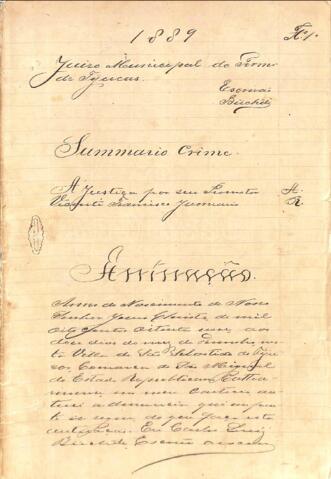 1889
Fl. 1.
Juizo Municipal do Termo
de Tijucas.
Escrivão
Büchele
Summario Crime.
A Justiça por seu Promotor A.
Vicente Francisco R.
Autuação.
Anno do Nascimento de Nosso
Senhor Jesus Christo de mil
oito centos oitenta nove, aos
doze dias do mez de Dezembro nes-
ta Villa de São Sebastião de Tiju-
cas, Comarca de São Miguel
do Estado Republicano, Cattha
em meu Cartorio au-
tuei a denuncia que
do que faço esta
autuação. Eu Carlos Luiz
Büchele Escrivão